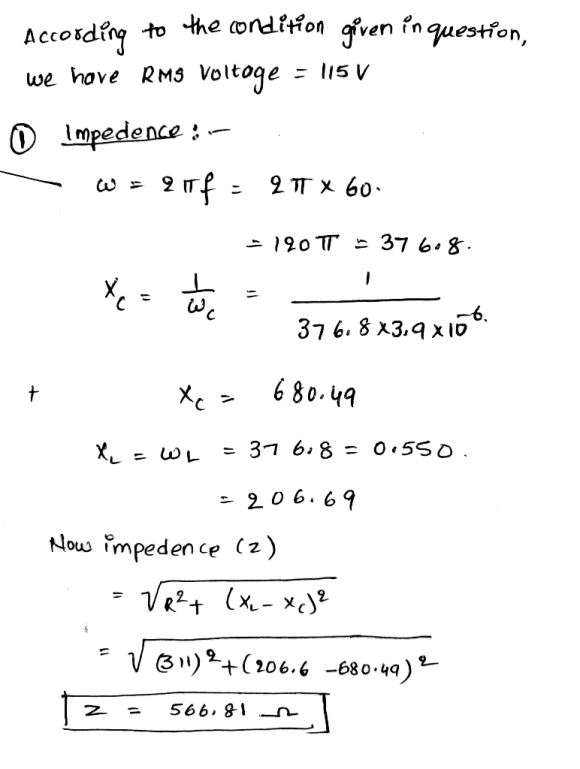 According to the condition given in question,
we have RMS Voltage = 115 V
① Impedence : -
ω = 2πf = 2π × 60.
= 120π = 376.8.
Xc = 1/ωc = 1/(376.8 × 3.9 × 10^-6.)
+ Xc = 680.49
XL = ωL = 376.8 = 0.550.
= 206.69
Now impedence (z)
= √(R² + (XL - Xc)²)
= √((311)² + (206.6 - 680.49)²)
z = 566.81 Ω